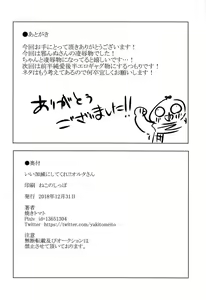 ●あとがき
今回お手にとって頂きありがとうございます！
今回は邪んぬさんの凌辱物です。
ちゃんと凌辱物になってると嬉しいです…！
次回は前半純愛後半エロギャグ物にするつもりです！
ネタはもう考えてあるので何卒宜しくお願いします！
ありがとう
ございました!!
●奥付
いい加減にしてくれ!!オルタさん
印刷 ねこのしっぽ
発行 2018年12月31日
著者
焼きトマト
Pixiv id=13651304
Twitter https://twitter.com/yakitomato
注意
無断転載及びオークションは
禁止させて頂いております。